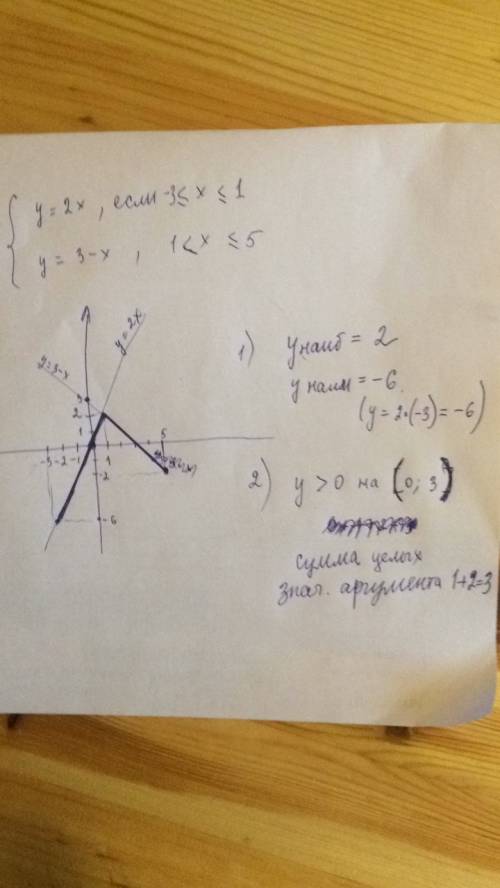 y = 2x , если -3 ≤ x ≤ 1
y = 3-x , 1 < x ≤ 5
y = 2x
y = 3-x
3
2
1
-3 -2 -1 1 5
-2
-6
1) y наиб = 2
y наим = -6
(y = 2·(-3) = -6)
2) y > 0 на (0; 3)
сумма целых
знач. аргумента 1+2=3